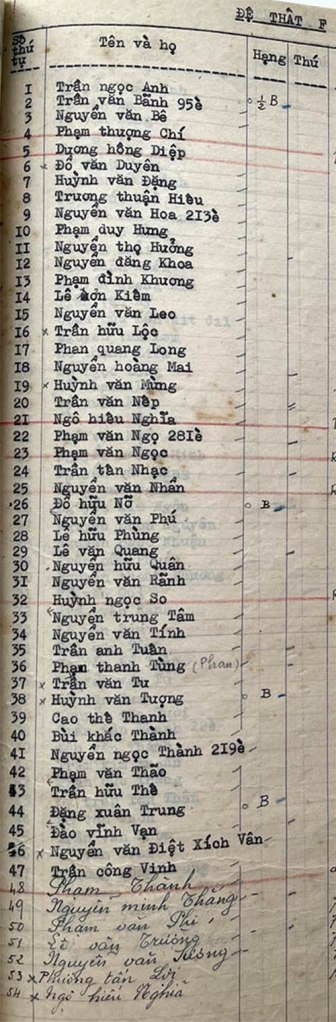 ĐỆ THẤT F
Số thứ tự Tên và họ Hạng Thứ
1 Trần ngọc Anh
2 Trần văn Bảnh 95è ½ B
3 Nguyễn văn Bê
4 Phạm thượng Chí
5 Dương hồng Diệp
6 x Đỗ văn Duyên
7 Huỳnh văn Đặng
8 Trương thuận Hiếu
9 Nguyễn văn Hoa 213è
10 Phạm duy Hưng
11 Nguyễn thọ Hưởng
12 Nguyễn đăng Khoa
13 Phạm đình Khương
14 Lê sơn Kiêm
15 Nguyễn văn Leo
16 x Trần hữu Lộc
17 Phan quang Long
18 Nguyễn hoàng Mai
19 x Huỳnh văn Mừng
20 Trần văn Nếp
21 Ngô hiếu Nghĩa
22 Phạm văn Ngọ 281è
23 Phạm văn Ngọc
24 Trần tấn Nhạc
25 Nguyễn văn Nhẩn
26 Đỗ hữu Nỡ B
27 Nguyễn văn Phú
28 Lê hữu Phùng
29 Lê văn Quang
30 Nguyễn hữu Quân
31 Nguyễn văn Rãnh
32 Huỳnh ngọc So
33 Nguyễn trung Tâm
34 Nguyễn văn Tính
35 Trần anh Tuấn
36 Phạm thanh Tùng (Phan)
37 x Trần văn Tư
38 x Huỳnh văn Tượng B
39 Cao thế Thanh
40 Bùi khắc Thành
41 Nguyễn ngọc Thành 219è
42 Phạm văn Thảo
43 Trần hữu Thế
44 Đặng xuân Trung B
45 Đào vĩnh Vạn
46 x Nguyễn văn Điệt Xích Vân
47 Trần công Vinh
48 Phạm Thành
49 Nguyễn minh Thắng
50 Phạm văn Phi
51 Lê văn Trương
52 Nguyễn văn
53 x Phương tấn Lợi
54 x Ngô hiếu Nghĩa